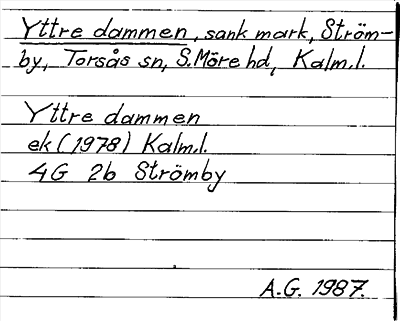 Yttre dammen, sank mark, Ström-
by, Torsås sn, S. Möre hd, Kalm.l.
Yttre dammen
ek (1978) Kalm.l.
4G 2b Strömby
A.G. 1987.